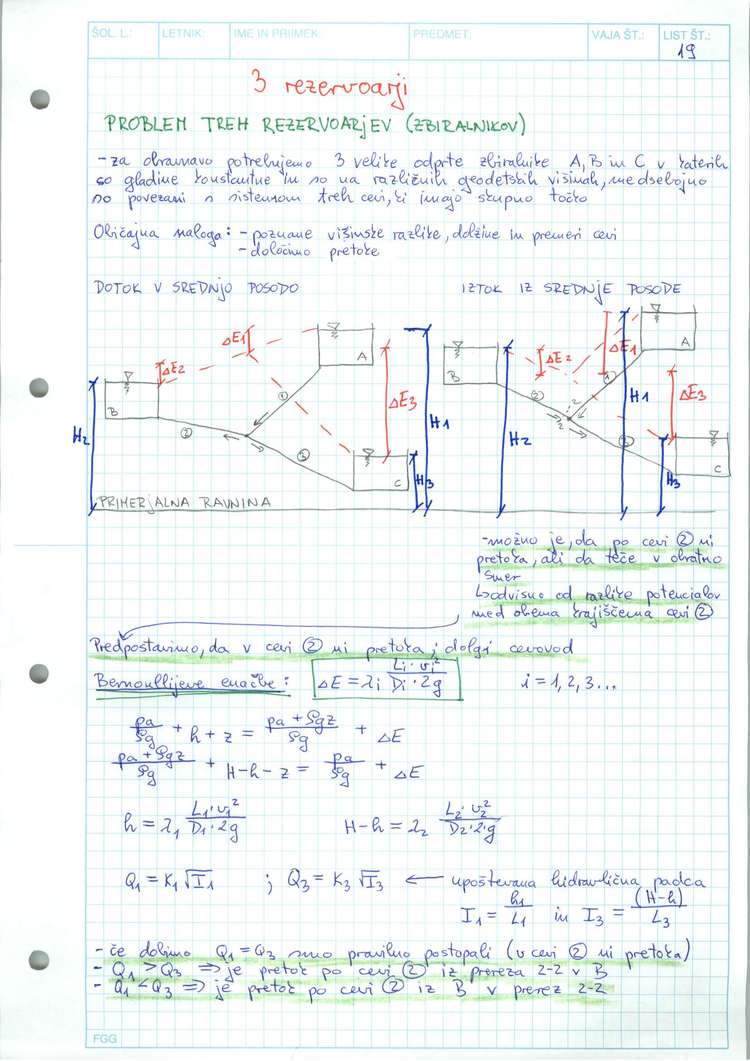 ŠOL. L.: LETNIK: IME IN PRIIMEK: PREDMET: VAJA ŠT.: LIST ŠT.:
19
3 rezervoarji
PROBLEM TREH REZERVOARJEV (ZBIRALNIKOV)
- za obravnavo potrebujemo 3 velike odprte zbiralnike A, B in C v katerih
so gladine konstantne in so na različnih geodetskih višinah, medsebojno
so povezani s sistemom treh cevi, ki imajo skupno točko
Običajna naloga: - poznane višinske razlike, dolžine in premeri cevi
- določimo pretoke
DOTOK V SREDNJO POSODO
IZTOK IZ SREDNJE POSODE
ΔE1
A
ΔE2
B
①
②
③
ΔE3
H1
H2
H3
C
PRIMERJALNA RAVNINA
A
B
ΔE2
ΔE1
①
②
2
2
③
H1
H2
ΔE3
H3
C
- možno je, da po cevi ② ni
pretoka, ali da teče v obratno
smer
↳ odvisno od razlike potencialov
med obema krajiščema cevi ②
Predpostavimo, da v cevi ② ni pretoka; dolgi cevovod
Bernoullijeve enačbe: ΔE = λi Li · vi² / Di · 2g i = 1, 2, 3...
pa / ρg + h + z = pa + ρgz / ρg + ΔE
pa + ρgz / ρg + H - h - z = pa / ρg + ΔE
h = λ1 L1 · v1² / D1 · 2g H - h = λ2 L2 · v2² / D2 · 2 · g
Q1 = K1 √I1 ; Q3 = K3 √I3 ← upoštevana hidravlična padca
I1 = h1 / L1 in I3 = (H-h) / L3
- če dobimo Q1 = Q3 smo pravilno postopali (v cevi ② ni pretoka)
- Q1 > Q3 ⇒ je pretok po cevi ② iz prereza 2-2 v B
- Q1 < Q3 ⇒ je pretok po cevi ② iz B v prerez 2-2
FGG